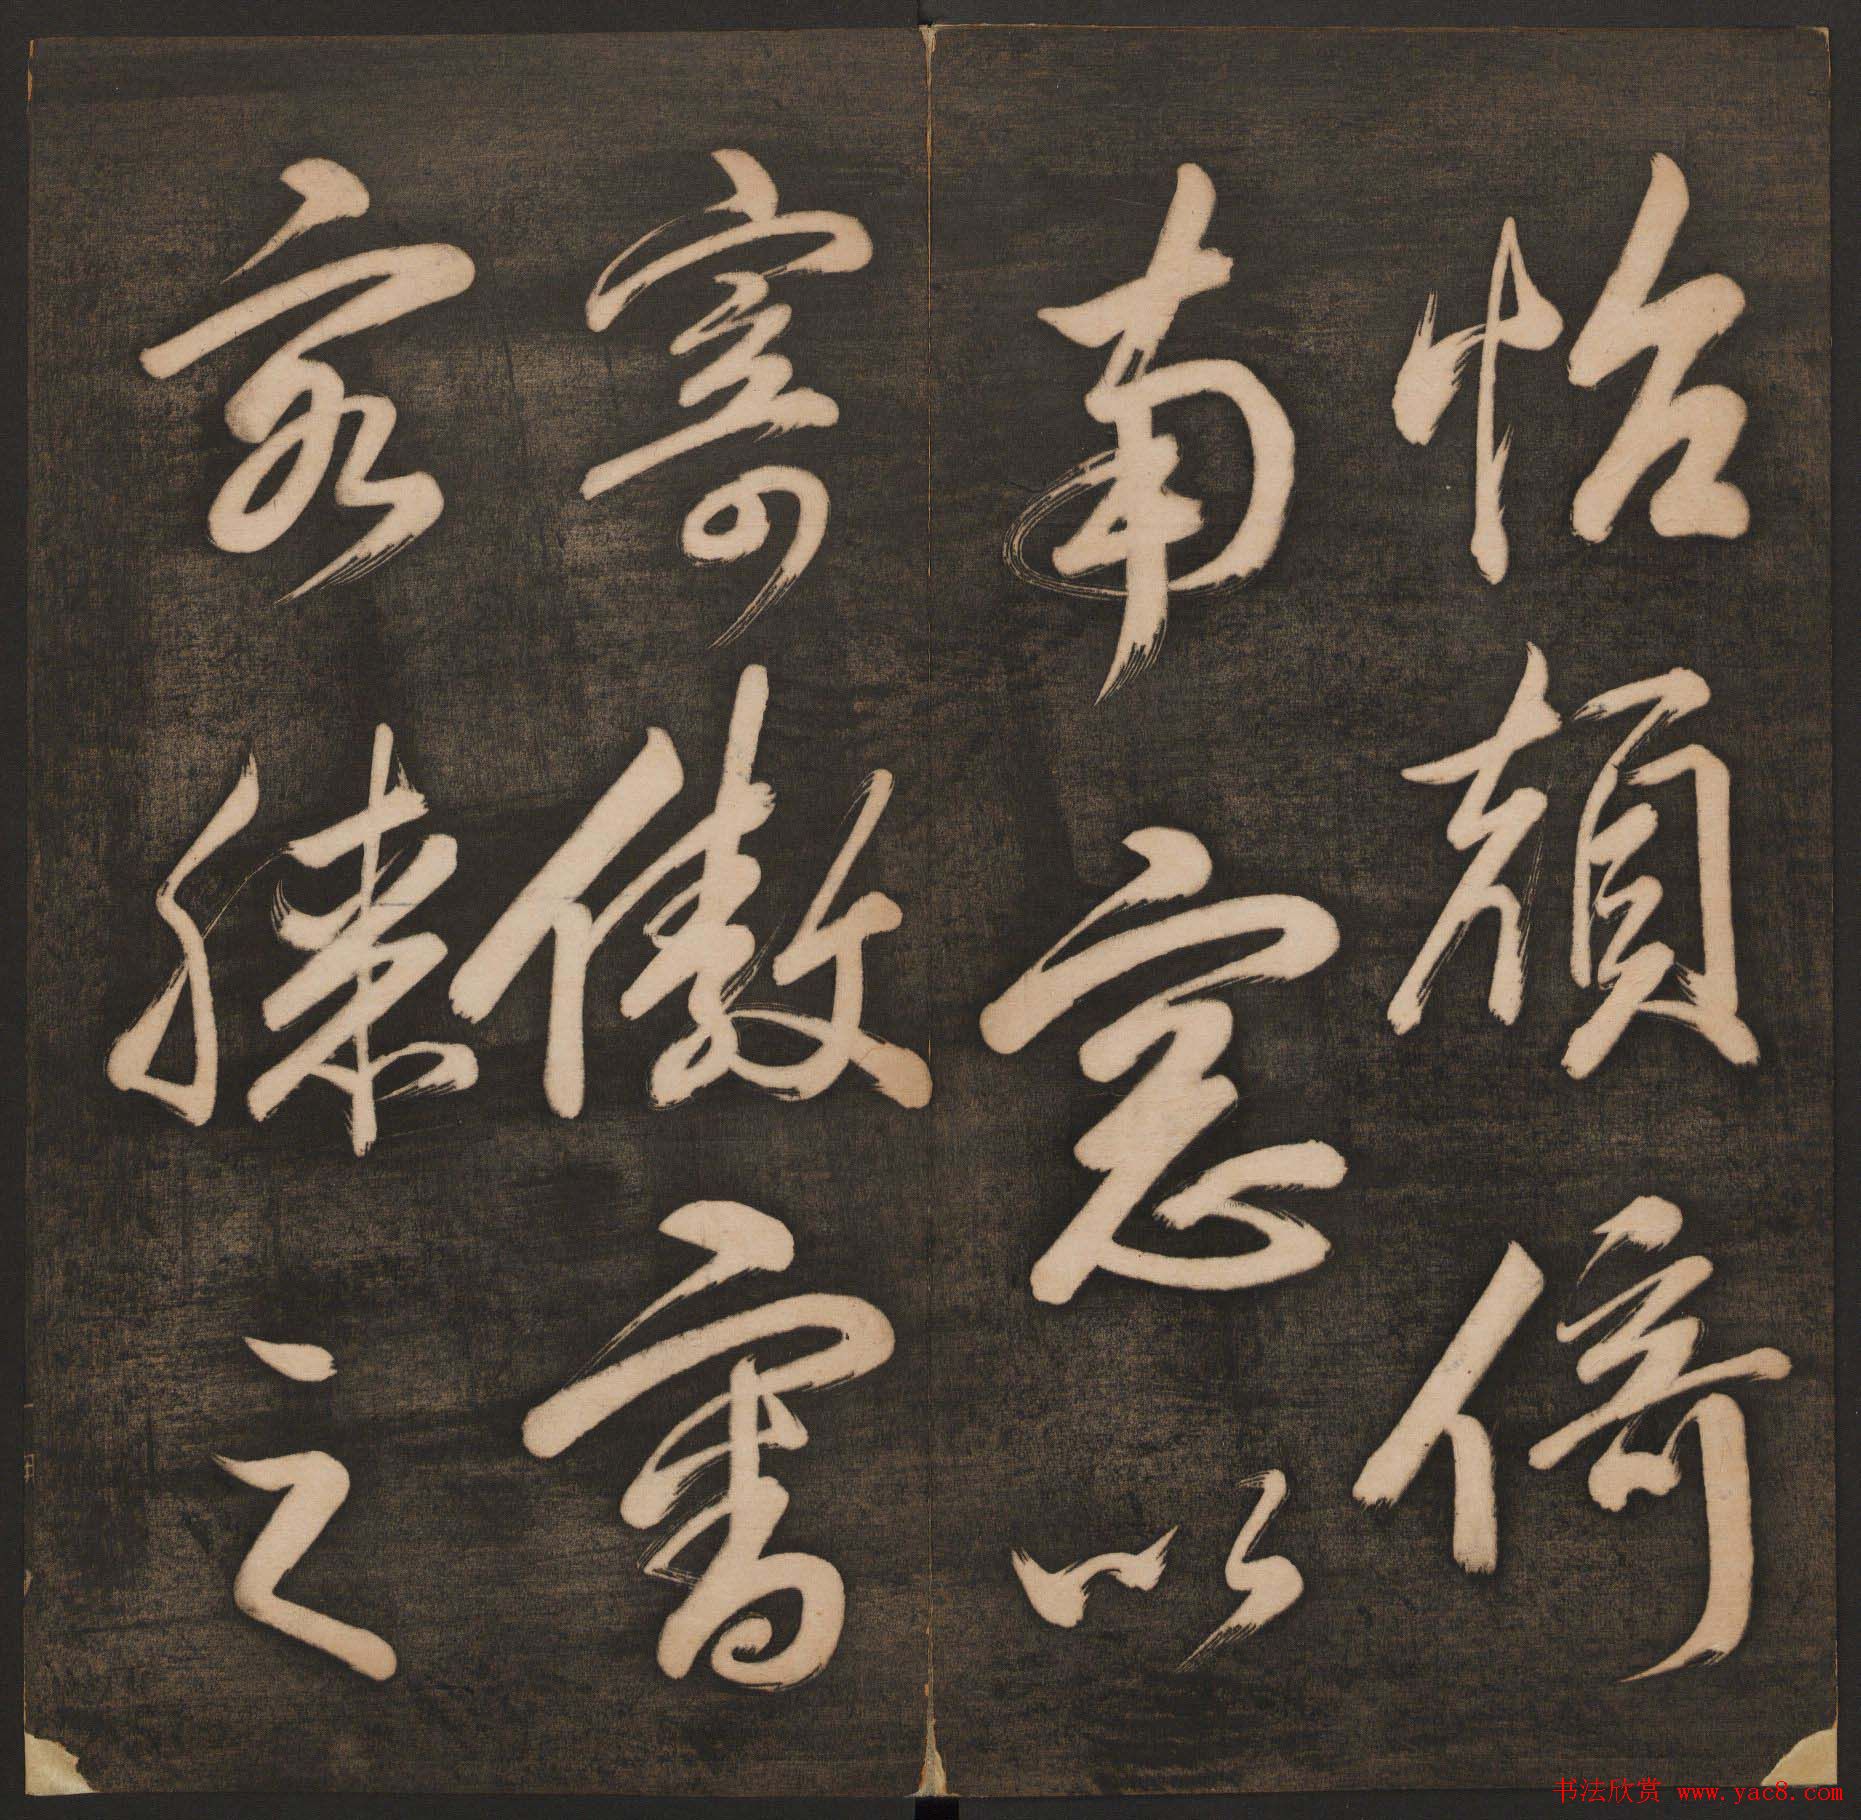 怡顏倚
南窓以
寄傲審
容膝之
书法欣赏 www.yac8.com